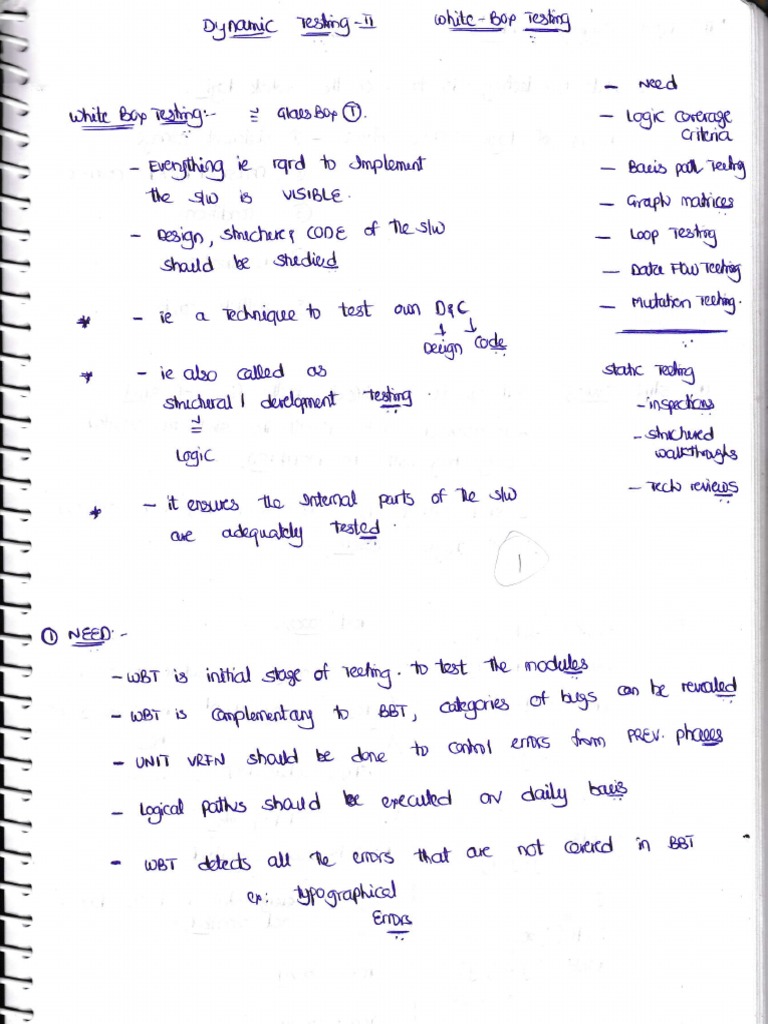 Dynamic Testing-II White-Box Testing
White Box Testing:- ≅ Glass Box T.
- Everything ie rqrd to Implement
the S/W is VISIBLE.
- Design, structure, CODE of the S/W
should be studied
* - ie a Technique to test own D&C
Design Code
* - ie also called as
structural / development Testing
≅
Logic
* - it ensures the internal parts of the S/W
are adequately tested.
- Need
- Logic coverage
Criteria
- Basis path Testing
- Graph matrices
- Loop Testing
- Data Flow Testing
- Mutation Testing.
Static Testing
- inspections
- structured
walkthroughs
- Tech reviews
1
① NEED:-
- WBT is initial stage of Testing. to test the modules
- WBT is complementary to BBT, categories of bugs can be revealed
- UNIT VRFN should be done to control errors from PREV. phases
- Logical paths should be executed on daily basis
- WBT detects all the errors that are not covered in BBT
ex: typographical
Errors